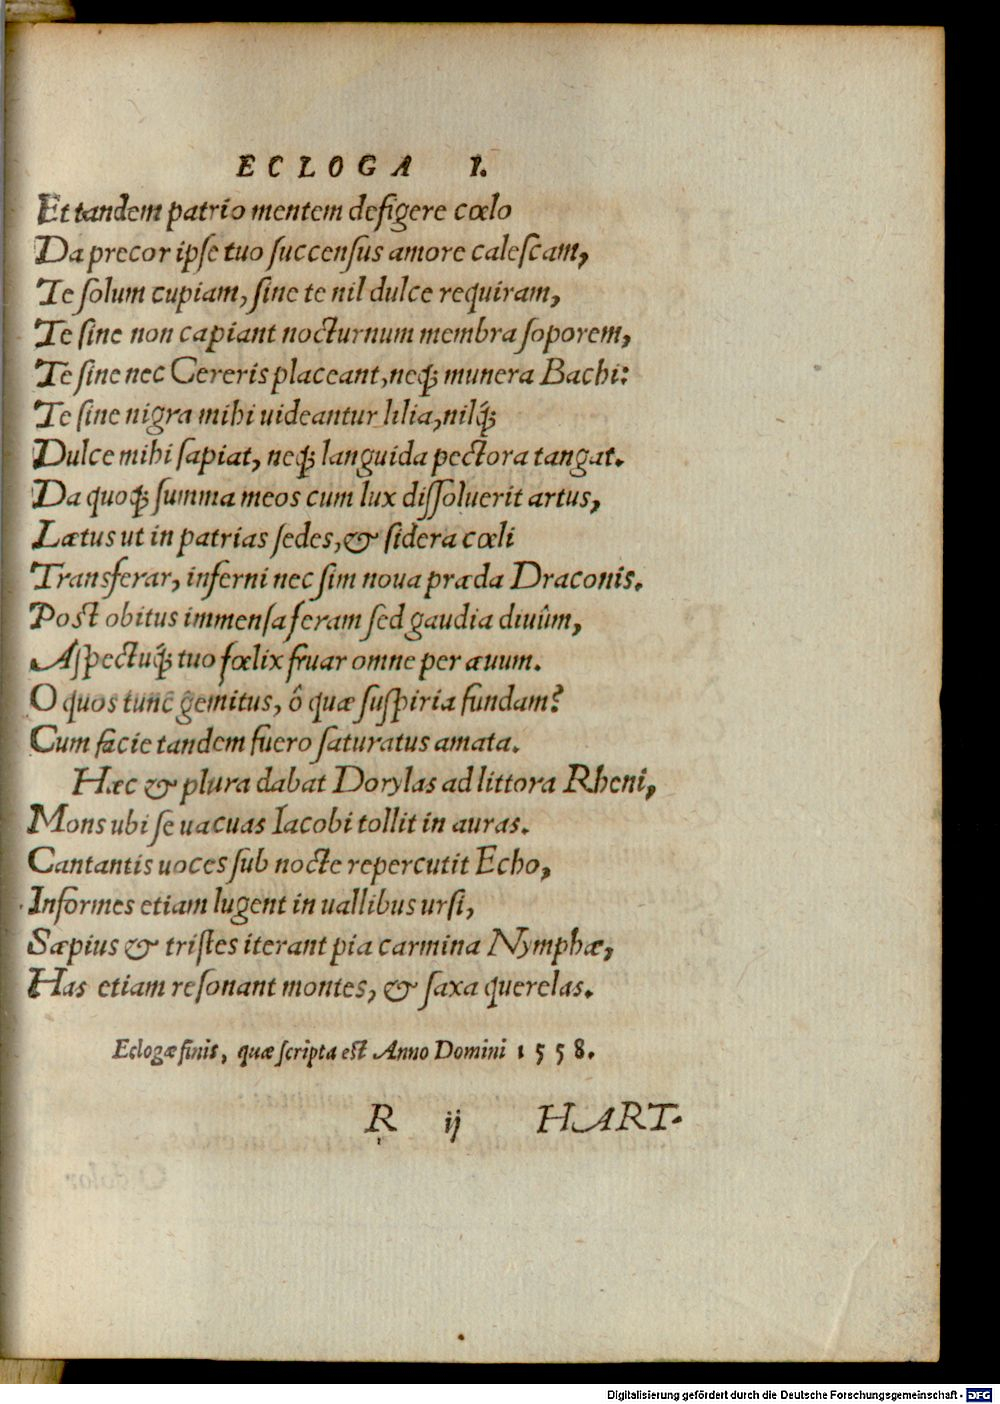 ECLOGA 1.
Et tandem patrio mentem defigere cœlo
Da precor ipſe tuo ſuccenſus amore caleſcam,
Te ſolum cupiam, ſine te nil dulce requiram,
Te ſine non capiant nocturnum membra ſoporem,
Te ſine nec Cereris placeant, neqꝫ munera Bachi:
Te ſine nigra mihi uideantur lilia, nilq́ꝫ
Dulce mihi ſapiat, neqꝫ languida pectora tangat.
Da quoqꝫ ſumma meos cum lux diſſoluerit artus,
Lætus ut in patrias ſedes, & ſidera cœli
Transferar, inferni nec ſim noua præda Draconis.
Poſt obitus immenſa feram ſed gaudia diuûm,
Aſpectuq́ꝫ tuo fœlix fruar omne per æuum.
O quos tunc gemitus, ô quæ ſuſpiria fundam?
Cum facie tandem fuero ſaturatus amata.
Hæc & plura dabat Dorylas ad littora Rheni,
Mons ubi ſe uacuas Iacobi tollit in auras.
Cantantis uoces ſub nocte repercutit Echo,
Informes etiam lugent in uallibus urſi,
Sæpius & triſtes iterant pia carmina Nymphæ,
Has etiam reſonant montes, & ſaxa querelas.
Eclogæ finis, quæ ſcripta eſt Anno Domini 1558.
R ij HART-
Digitalisierung gefördert durch die Deutsche Forschungsgemeinschaft - DFG